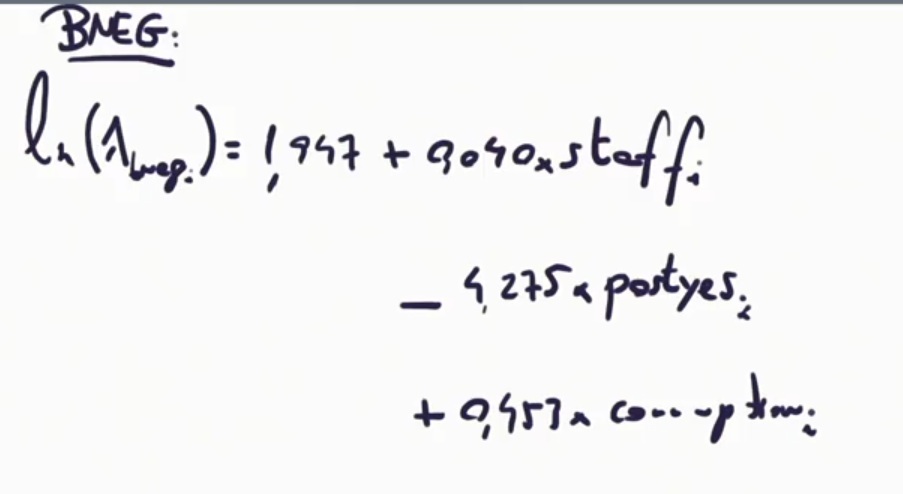 BNEG:
ln(λ̂bneg i) = 1,947 + 0,040 x staff i
- 4,275 x postyes i
+ 0,453 x corruption i